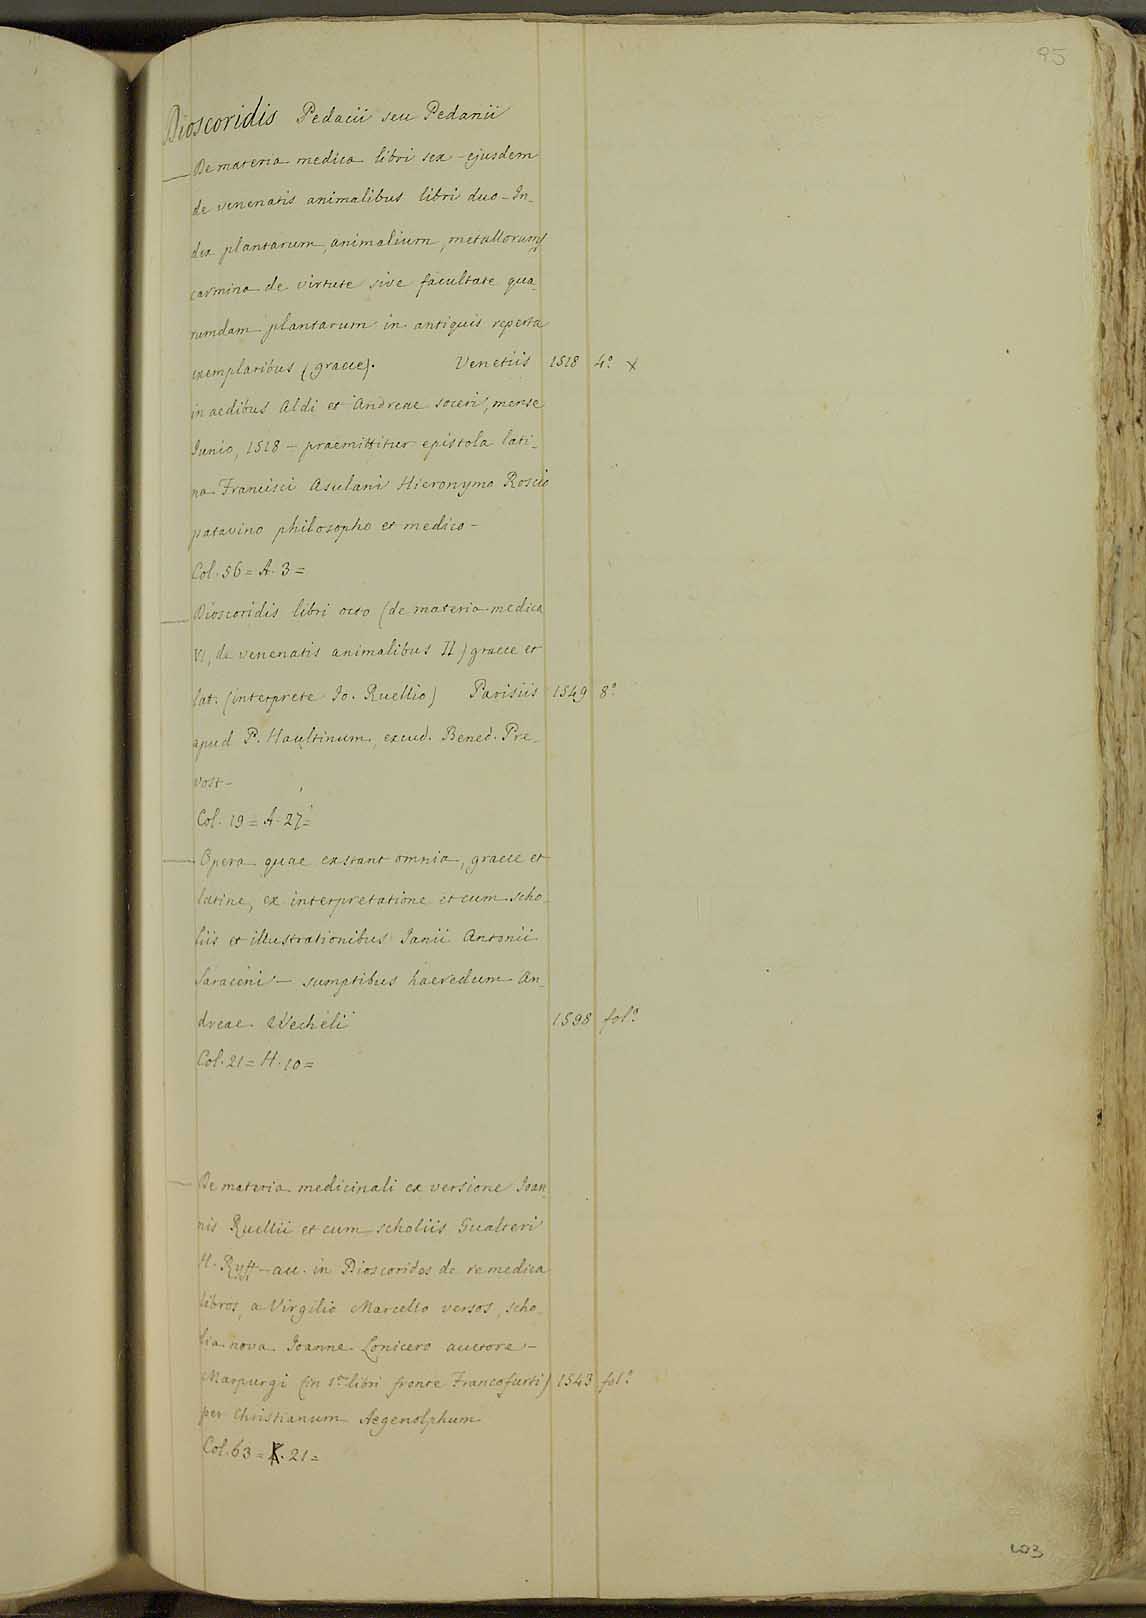 95
Dioscoridis Pedacii seu Pedanii
— De materia medica libri sex - ejusdem
de venenatis animalibus libri duo - In-
dex plantarum, animalium, metallorum,
carmina de virtute sive facultate qua-
rumdam plantarum in antiquis reperta
exemplaribus (graece). Venetiis 1518 4.º x
in aedibus Aldi et Andreae soceri, mense
Junio, 1518 - praemittitur epistola lati-
na Francisci Asulani Hieronymo Roscio
patavino philosopho et medico -
Col. 56 = A. 3 =
— Dioscoridis libri octo (de materia medica
VI, de venenatis animalibus II) graece et
lat. (interprete Jo. Ruellio) Parisiis 1549 8.º
apud P. Haultinum, excud. Bened. Pre-
vost -
Col. 19 = A. 27 =
— Opera quae extant omnia, graece et
latine, ex interpretatione et cum scho-
liis et illustrationibus Janii Antonii
Saraceni - sumptibus haeredum An-
dreae Wecheli 1598 fol.º
Col. 21 = H. 10 =
— De materia medicinali ex versione Joan
nis Ruellii et cum scholiis Gualteri
H. Ryff - ac. in Dioscorides de re medica
libros, a Virgilio Marcello versos, scho-
lia nova Joanne Lonicero auctore -
Marpurgi (in 1.mi libri fronte Francofurti) 1543 fol.º
per Christianum Aegenolphum
Col. 63 = K. 21 =
103